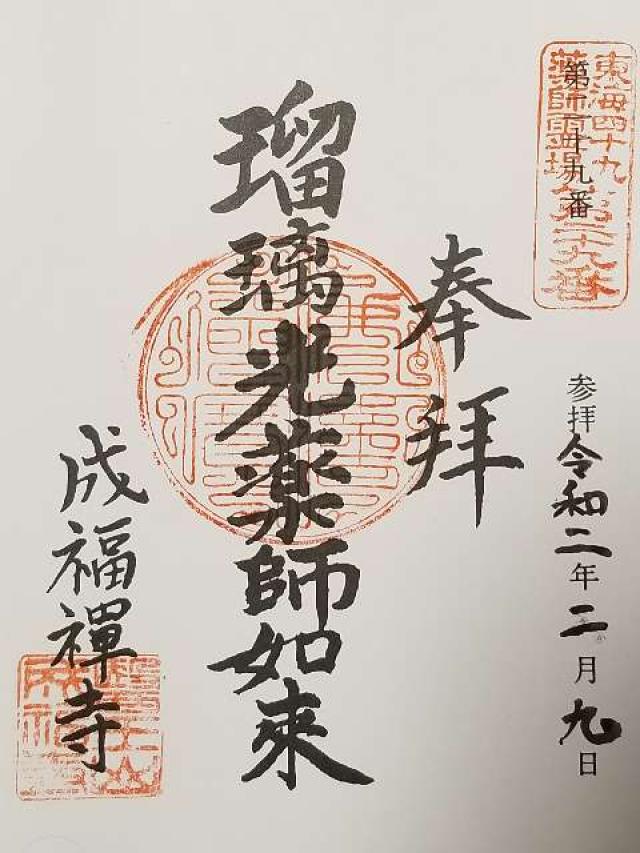 東海四十九
薬師霊場第二十九番
第二十九番
参拝令和二年二月九日
奉拝
瑠璃光薬師如来
成福禅寺